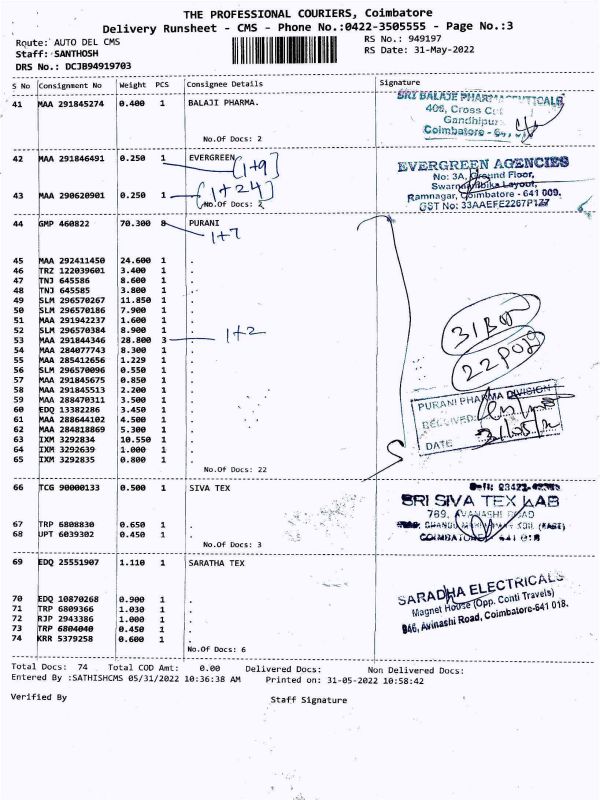 THE PROFESSIONAL COURIERS, Coimbatore
Delivery Runsheet - CMS - Phone No.:0422-3505555 - Page No.:3
Route: AUTO DEL CMS
RS No.: 949197
Staff: SANTHOSH
RS Date: 31-May-2022
DRS No.: DCJB94919703
S No Consignment No Weight PCS Consignee Details Signature
41 MAA 291845274 0.400 1 BALAJI PHARMA.
SRI BALAJE PHARMACEUTICALS
406, Cross Cut
Gandhipur
Coimbatore -
No.Of Docs: 2
42 MAA 291846491 0.250 1 EVERGREEN
(1+9)
EVERGREEN AGENCIES
No: 3A, Ground Floor,
Swarnambika Layout,
Ramnagar, Coimbatore - 641 009.
GST No: 33AAEFE2267P1Z7
43 MAA 290620901 0.250 1
(1+24)
No.Of Docs: 2
44 GMP 460822 70.300 8 PURANI
1+7
45 MAA 292411450 24.600 1 .
46 TRZ 122039601 3.400 1 .
47 TNJ 645586 8.600 1 .
48 TNJ 645585 3.800 1 .
49 SLM 296570267 11.850 1 .
50 SLM 296570186 7.900 1 .
51 MAA 291942237 1.600 1 .
52 SLM 296570384 8.900 1 .
53 MAA 291844346 28.800 3 .
1+2
54 MAA 284077743 8.300 1 .
55 MAA 285412656 1.229 1 .
56 SLM 296570096 0.550 1 .
57 MAA 291845675 0.850 1 .
58 MAA 291845513 2.200 1 .
59 MAA 288470311 3.500 1 .
60 EDQ 13382286 3.450 1 .
61 MAA 288644102 4.500 1 .
62 MAA 284818869 5.300 1 .
63 IXM 3292834 10.550 1 .
64 IXM 3292639 1.000 1 .
65 IXM 3292835 0.800 1 .
31 Box
PURANI PHARMA DIVISION
RECEIVED
DATE
No.Of Docs: 22
66 TCG 90000133 0.500 1 SIVA TEX
SRI SIVA TEX LAB
789, AVANASHI ROAD
67 TRP 6808830 0.650 1 .
68 UPT 6039302 0.450 1 .
No.Of Docs: 3
69 EDQ 25551907 1.110 1 SARATHA TEX
SARADHA ELECTRICALS
Magnet House (Opp. Conti Travels)
946, Avinashi Road, Coimbatore-641 018.
70 EDQ 10870268 0.900 1 .
71 TRP 6809366 1.030 1 .
72 RJP 2943386 1.000 1 .
73 TRP 6804040 0.450 1 .
74 KRR 5379258 0.600 1 .
No.Of Docs: 6
Total Docs: 74 Total COD Amt: 0.00 Delivered Docs: Non Delivered Docs:
Entered By :SATHISHCMS 05/31/2022 10:36:38 AM Printed on: 31-05-2022 10:58:42
Verified By Staff Signature